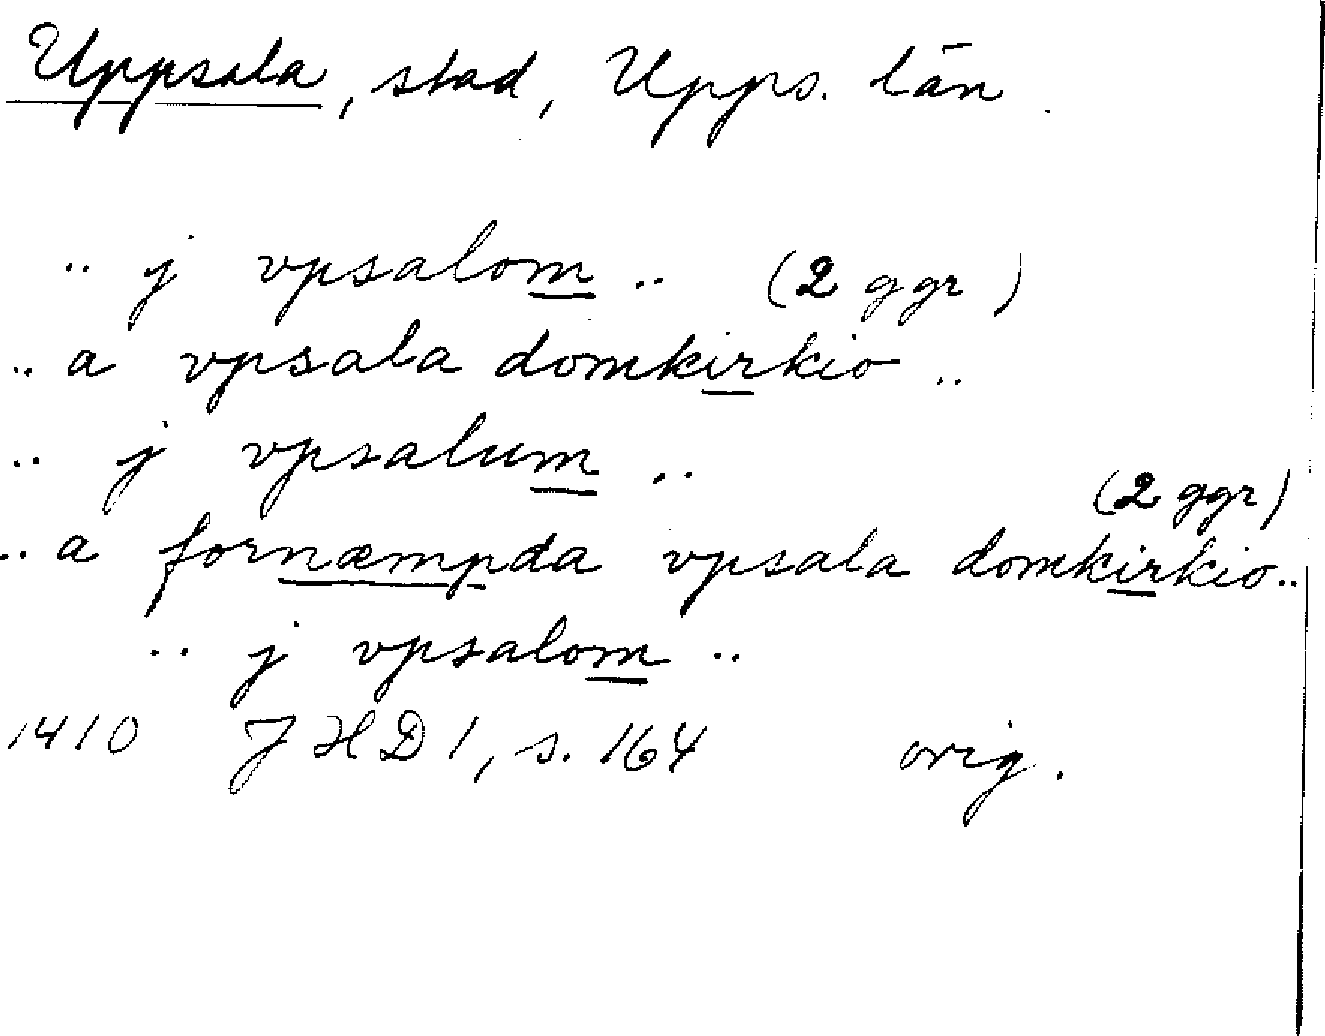 Uppsala, stad, Upps. län
.. j vpsalom .. (2 ggr)
.. a vpsala domkirkio ..
.. j vpsalum ..
(2 ggr)
.. a fornæmpda vpsala domkirkio..
.. j vpsalom ..
1410 JHD 1, s. 164 orig.